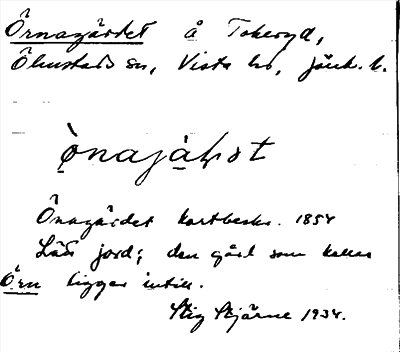 Örnagärdet å Tokeryd,
Ölmstads sn, Vista hd, Jönk. l.
Önagärdet kartbeskr. 1854
Läs jord; den gård som kallas
Örn ligger intill.
Stig Stjärne 1934.